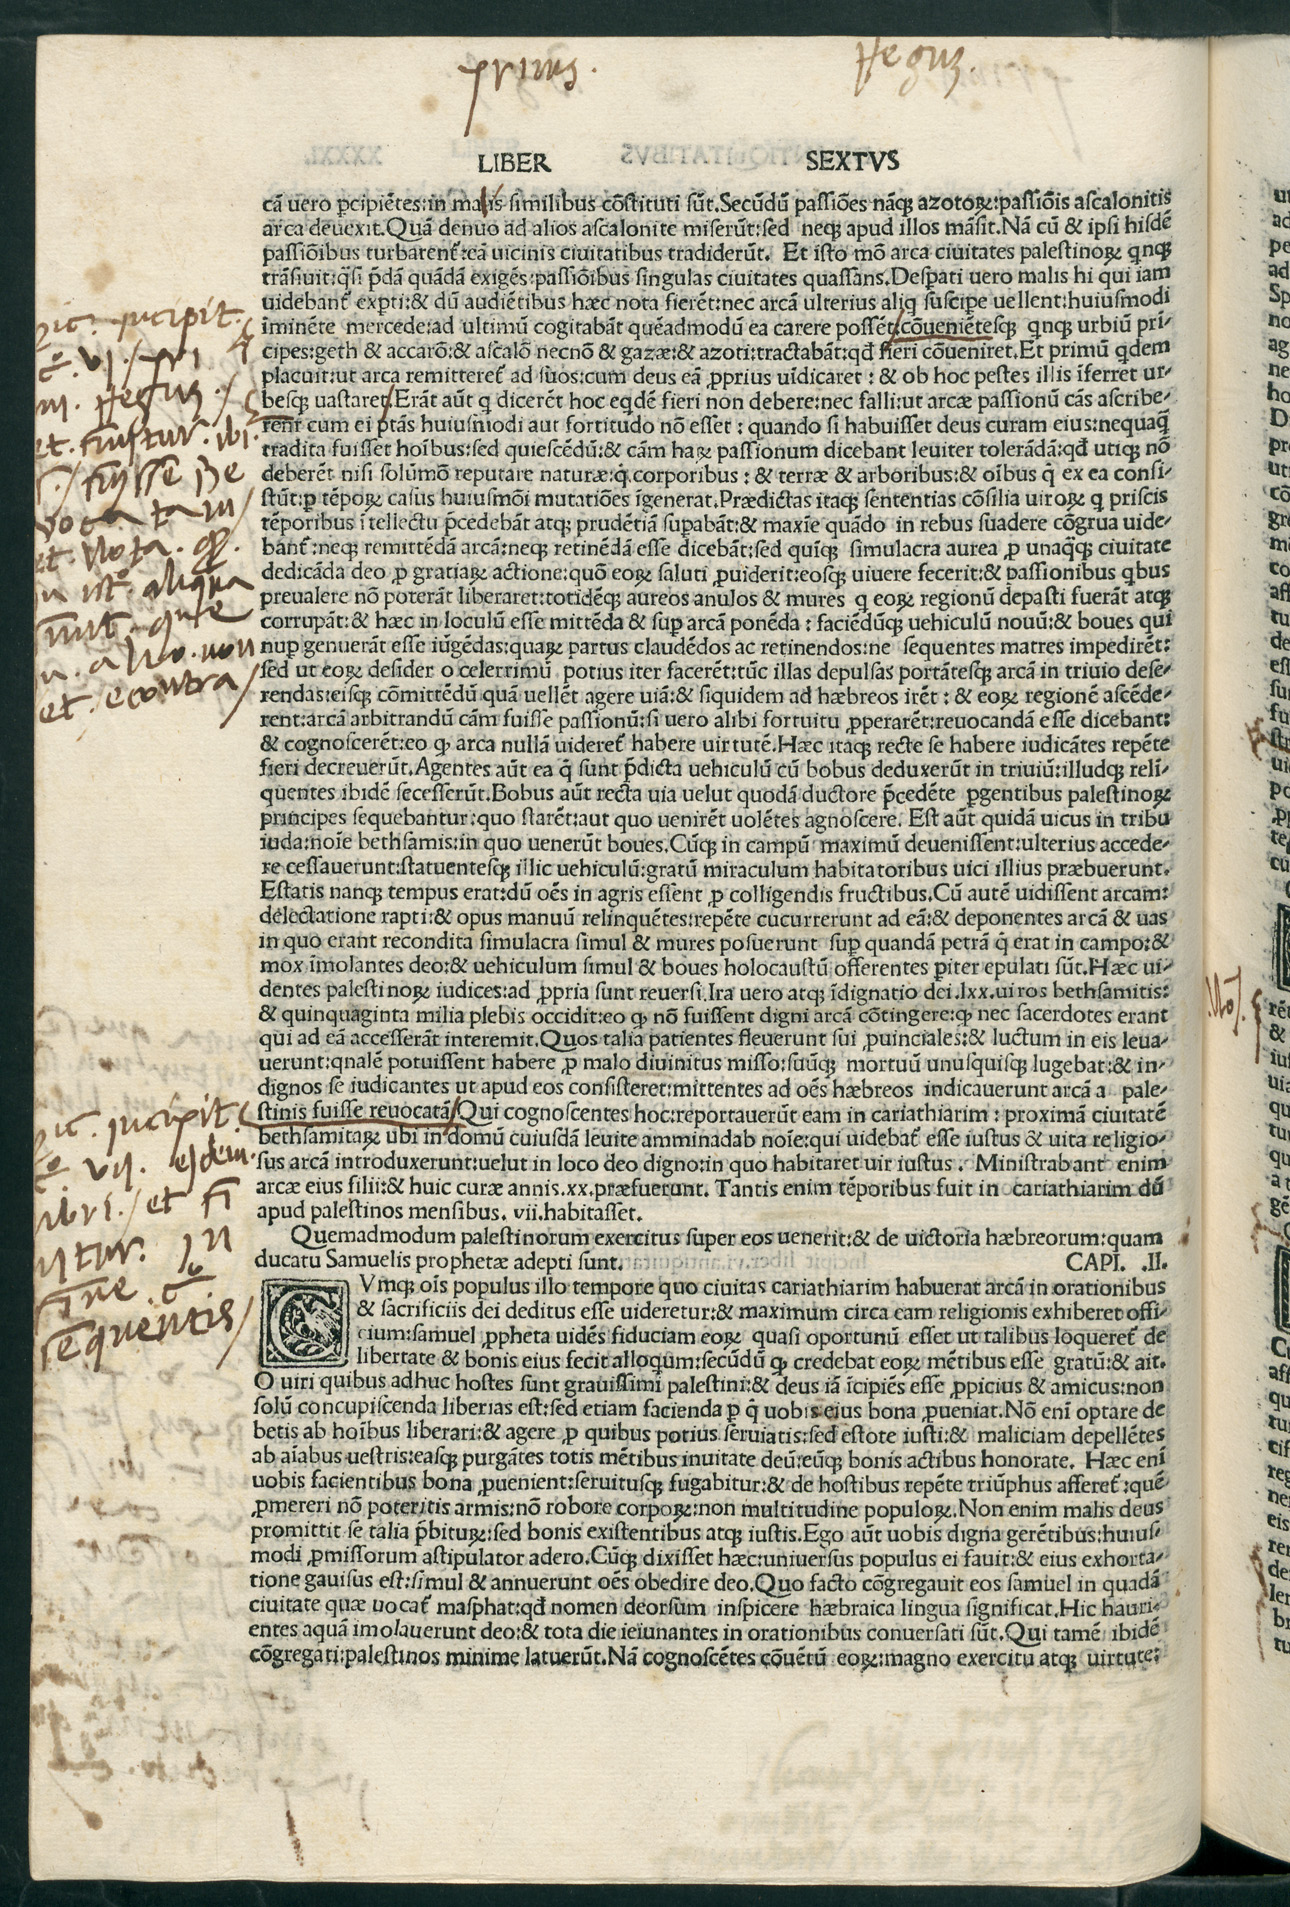 primus.
Regum.
LIBER SEXTVS
cā uero p̄cipiētes:in malis similibus cōstituti sūt.Secūdū passiōes nāq; azotoꝝ:passiōis ascalonitis
arca deuexit.Quā denuo ad alios ascalonite miserūt:sed neq; apud illos māsit.Nā cū & ipsi hisdē
passiōibus turbarent̄:eā uicinis ciuitatibus tradiderūt. Et isto mō arca ciuitates palestinoꝝ qnq;
trāsiuit:q̄si p̄dā quādā exigēs:passiōibus singulas ciuitates quassans.Desp̄ati uero malis hi qui iam
uidebant̄ exp̄ti:& dū audiētibus hæc nota fierēt:nec arcā ulterius aliq suscipe uellent:huiusmodi
iminēte mercede:ad ultimū cogitabāt quēadmodū ea carere possēt:cōueniētesq; qnq; urbiū prī-
cipes:geth & accarō:& ascalō necnō & gazæ:& azoti:tractabāt:qd̄ fieri cōueniret.Et primū qdem
placuit:ut arca remitteret̄ ad suos:cum deus eā ꝓprius uīdicaret : & ob hoc pestes illis īferret ur-
besq; uastaret/Erāt aūt q dicerēt hoc eqdē fieri non debere:nec falli:ut arcæ passionū cās ascribe-
rent̄ cum ei ptās huiusmodi aut fortitudo nō esset : quando si habuisset deus curam eius:nequaq̄
tradita fuisset hoībus:sed quiescēdū:& cām haꝝ passionum dicebant leuiter tolerādā:qd̄ utiq; nō
deberēt nisi solūmō reputare naturæ:q̄ corporibus : & terræ & arboribus:& oībus q̄ ex ea consi-
stūt:ꝑ tēpoꝝ casus huiusmōi mutatiōes īgenerat.Prædictas itaq; sententias cōsilia uiroꝝ q priscis
tēporibus ītellectu p̄cedebāt atq; prudētiā supabāt:& maxīe quādo in rebus suadere cōgrua uide-
bant̄:neq; remittēdā arcā:neq; retinēdā esse dicebāt:sed quīq; simulacra aurea ꝑ unaq̄q; ciuitate
dedicāda deo ꝓ gratiaꝝ actione:quō eoꝝ saluti ꝓuiderit:eosq; uiuere fecerit:& passionibus qbus
preualere nō poterāt liberaret:totidēq; aureos anulos & mures q eoꝝ regionū depasti fuerāt atq;
corrupāt:& hæc in loculū esse mittēda & sup arcā ponēda : faciēdūq; uehiculū nouū:& boues qui
nup genuerāt esse iūgēdas:quaꝝ partus claudēdos ac retinendos:ne sequentes matres impedirēt:
sed ut eoꝝ desider o celerrimū potius iter facerēt:tūc illas depulsas portātesq; arcā in triuio dese-
rendas:eisq; cōmittēdū quā uellēt agere uiā:& siquidem ad hæbreos irēt : & eoꝝ regionē ascēde-
rent:arcā arbitrandū cām fuisse passionū:si uero alibi fortuitu ꝓperarēt:reuocandā esse dicebant:
& cognoscerēt:eo ꝙ arca nullā uideret̄ habere uirtutē.Hæc itaq; recte se habere iudicātes repēte
fieri decreuerūt.Agentes aūt ea q̄ sunt p̄dicta uehiculū cū bobus deduxerūt in triuiū:illudq; reli-
quentes ibidē secesserūt.Bobus aūt recta uia uelut quodā ductore p̄cedēte ꝑgentibus palestinoꝝ
principes sequebantur:quo starēt:aut quo uenirēt uolētes agnoscere. Est aūt quidā uicus in tribu
iuda:noīe bethsamis:in quo uenerūt boues.Cūq; in campū maximū deuenissent:ulterius accede-
re cessauerunt:statuentesq; illic uehiculū:gratū miraculum habitatoribus uici illius præbuerunt.
Estatis nanq; tempus erat:dū oēs in agris essent ꝓ colligendis fructibus.Cū autē uidissent arcam:
delectatione rapti:& opus manuū relinquētes:repēte cucurrerunt ad eā:& deponentes arcā & uas
in quo erant recondita simulacra simul & mures posuerunt sup quandā petrā q̄ erat in campo:&
mox īmolantes deo:& uehiculum simul & boues holocaustū offerentes ꝑiter epulati sūt.Hæc ui-
dentes palestinoꝝ iudices:ad ꝓpria sunt reuersi.Ira uero atq; īdignatio dei.lxx.uiros bethsamitis:
& quinquaginta milia plebis occidit:eo ꝙ nō fuissent digni arcā cōtingere:ꝙ nec sacerdotes erant
qui ad eā accesserāt interemit.Quos talia patientes fleuerunt sui ꝓuinciales:& luctum in eis leua-
uerunt:qnalē potuissent habere ꝓ malo diuinitus misso:suūq; mortuū unusquisq; lugebat:& in-
dignos se iudicantes ut apud eos consisteret:mittentes ad oēs hæbreos indicauerunt arcā a pale-
stinis fuisse reuocatā/Qui cognoscentes hoc:reportauerūt eam in cariathiarim : proximā ciuitatē
bethsamitaꝝ ubi in domū cuiusdā leuite amminadab noīe:qui uidebat̄ esse iustus & uita religio-
sus arcā introduxerunt:uelut in loco deo digno:in quo habitaret uir iustus . Ministrabant enim
arcæ eius filii:& huic curæ annis.xx.præfuerunt. Tantis enim tēporibus fuit in cariathiarim dū
apud palestinos mensibus. vii.habitasset.
Quemadmodum palestinorum exercitus super eos uenerit:& de uictoria hæbreorum:quam
ducatu Samuelis prophetæ adepti sunt. CAPI. .II.
CVmq; oīs populus illo tempore quo ciuitas cariathiarim habuerat arcā in orationibus
& sacrificiis dei deditus esse uideretur:& maximum circa eam religionis exhiberet offi-
cium:samuel ꝓpheta uidēs fiduciam eoꝝ quasi oportunū esset ut talibus loqueret̄ de
libertate & bonis eius fecit alloqum:secūdū ꝙ credebat eoꝝ mētibus esse gratū:& ait.
O uiri quibus adhuc hostes sunt grauissimi palestini:& deus iā īcipiēs esse ꝓpicius & amicus:non
solū concupiscenda liberias est:sed etiam facienda ꝑ q̄ uobis eius bona ꝓueniat.Nō enī optare de
betis ab hoībus liberari:& agere ꝓ quibus potius seruiatis:sed estote iusti:& maliciam depellētes
ab aīabus uestris:easq; purgātes totis mētibus inuitate deū:eūq; bonis actibus honorate. Hæc enī
uobis facientibus bona ꝓuenient:seruitusq; fugabitur:& de hostibus repēte triūphus afferet̄:quē
ꝓmereri nō poteritis armis:nō robore corpoꝝ:non multitudine populoꝝ.Non enim malis deus
promittit se talia p̄bituꝝ:sed bonis existentibus atq; iustis.Ego aūt uobis digna gerētibus:huius-
modi ꝓmissorum astipulator adero.Cūq; dixisset hæc:uniuersus populus ei fauit:& eius exhorta-
tione gauisus est:simul & annuerunt oēs obedire deo.Quo facto cōgregauit eos samuel in quadā
ciuitate quæ uocat̄ masphat:qd̄ nomen deorsum inspicere hæbraica lingua significat.Hic hauri-
entes aquā imolauerunt deo:& tota die ieiunantes in orationibus conuersati sūt.Qui tamē ibidē
cōgregati:palestinos minime latuerūt.Nā cognoscētes cōuētū eoꝝ:magno exercitu atq; uirtute:
incipit.
vj. pri
Regum /
et. finitur. ibi.
fuisse
tam
et. Nota.
aliqua
que
alio. non
et. econtra /
incipit.
vij. ejdem.
libri. / et fi
nitur. In
fine
sequentis /